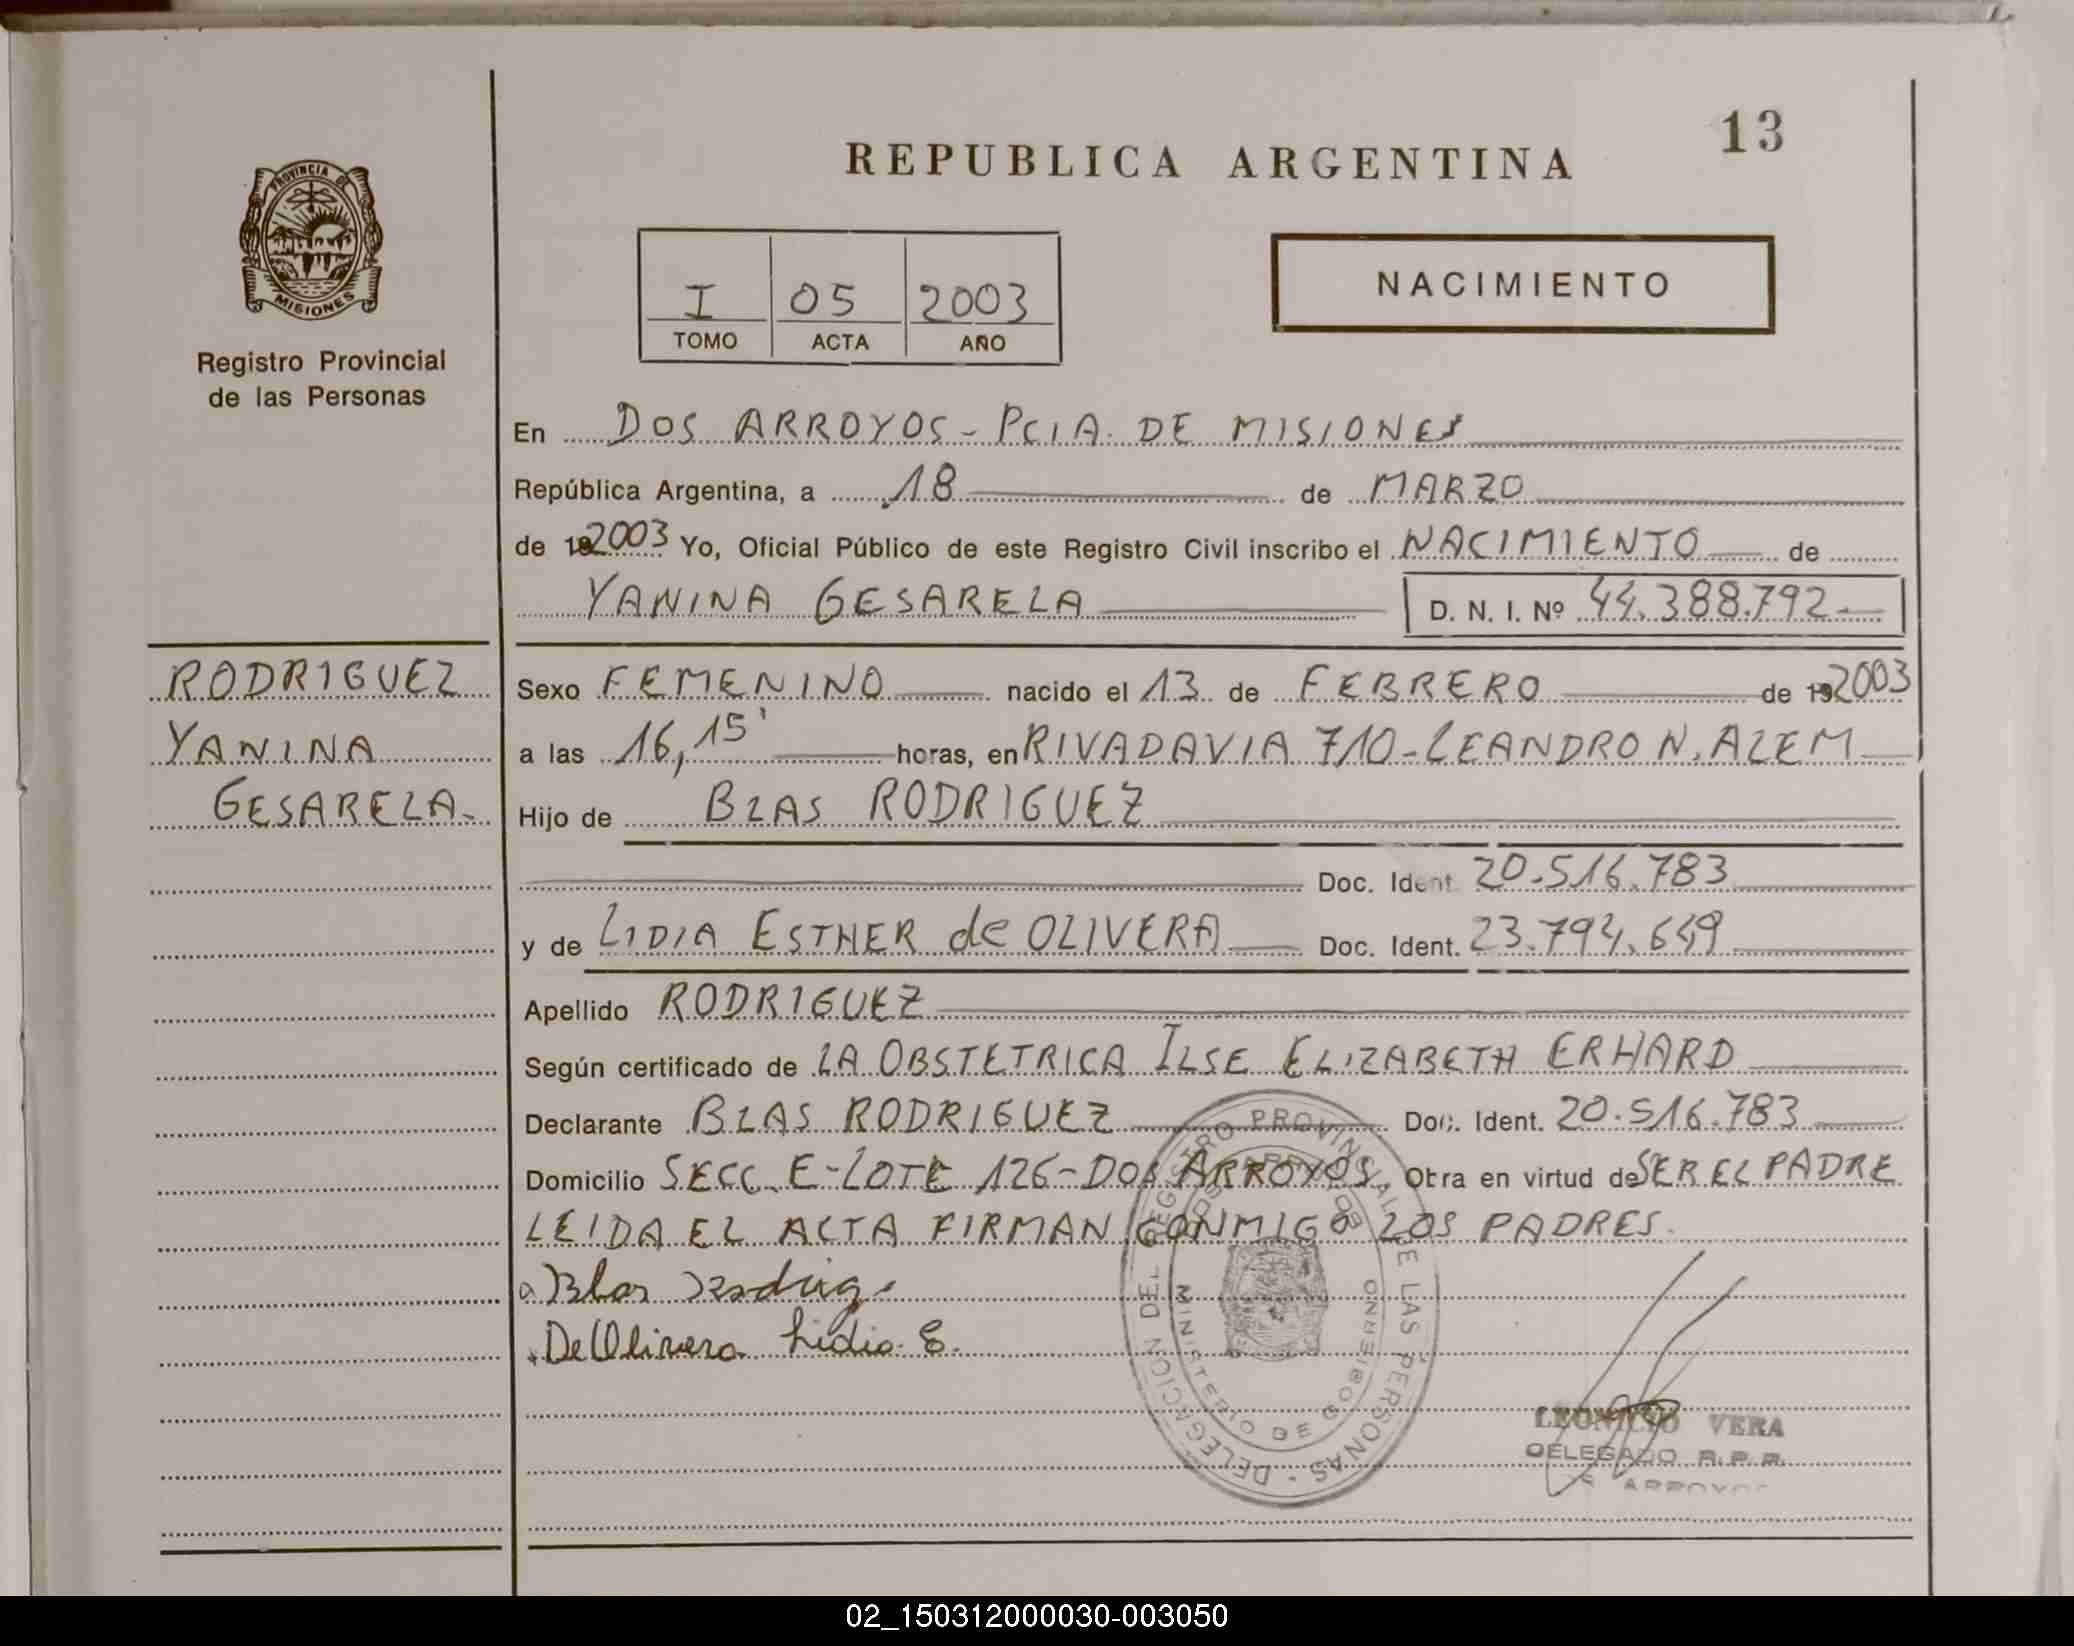 13
REPUBLICA ARGENTINA
PROVINCIA DE
MISIONES
Registro Provincial
de las Personas
I 05 2003
TOMO ACTA AÑO
NACIMIENTO
En DOS ARROYOS - PCIA. DE MISIONES
República Argentina, a 18 de MARZO
de 192003 Yo, Oficial Público de este Registro Civil inscribo el NACIMIENTO de
YANINA GESARELA D. N. I. Nº 44.388.792
RODRIGUEZ
YANINA
GESARELA.
Sexo FEMENINO nacido el 13 de FEBRERO de 192003
a las 16,15' horas, en RIVADAVIA 710 - LEANDRO N. ALEM
Hijo de BLAS RODRIGUEZ
Doc. Ident. 20.516.783
y de LIDIA ESTHER de OLIVERA Doc. Ident. 23.794.649
Apellido RODRIGUEZ
Según certificado de LA OBSTETRICA ILSE ELIZABETH ERHARD
Declarante BLAS RODRIGUEZ Doc. Ident. 20.516.783
Domicilio SECC. E - LOTE 126 - DOS ARROYOS. Obra en virtud de SER EL PADRE
LEIDA EL ACTA FIRMAN CONMIGO LOS PADRES.
Blas Rodrig
De Olivera Lidia E.
DELEGACION DEL REGISTRO PROVINCIAL DE LAS PERSONAS
DOS ARROYOS
MINISTERIO DE GOBIERNO
LEONICIO VERA
DELEGADO R.P.P.
ARROYOS
02_150312000030-003050